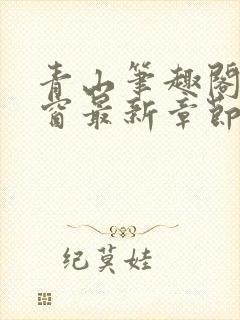 青山笔趣阁
窗最新章节
纪莫娃